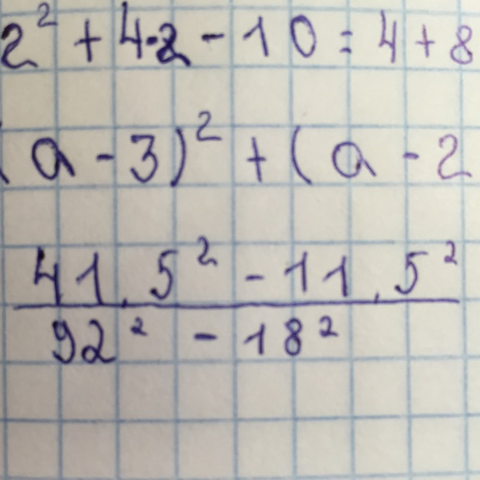 2² + 4·2 - 10 = 4 + 8
(a - 3)² + (a - 2
41,5² - 11,5²
92² - 18²